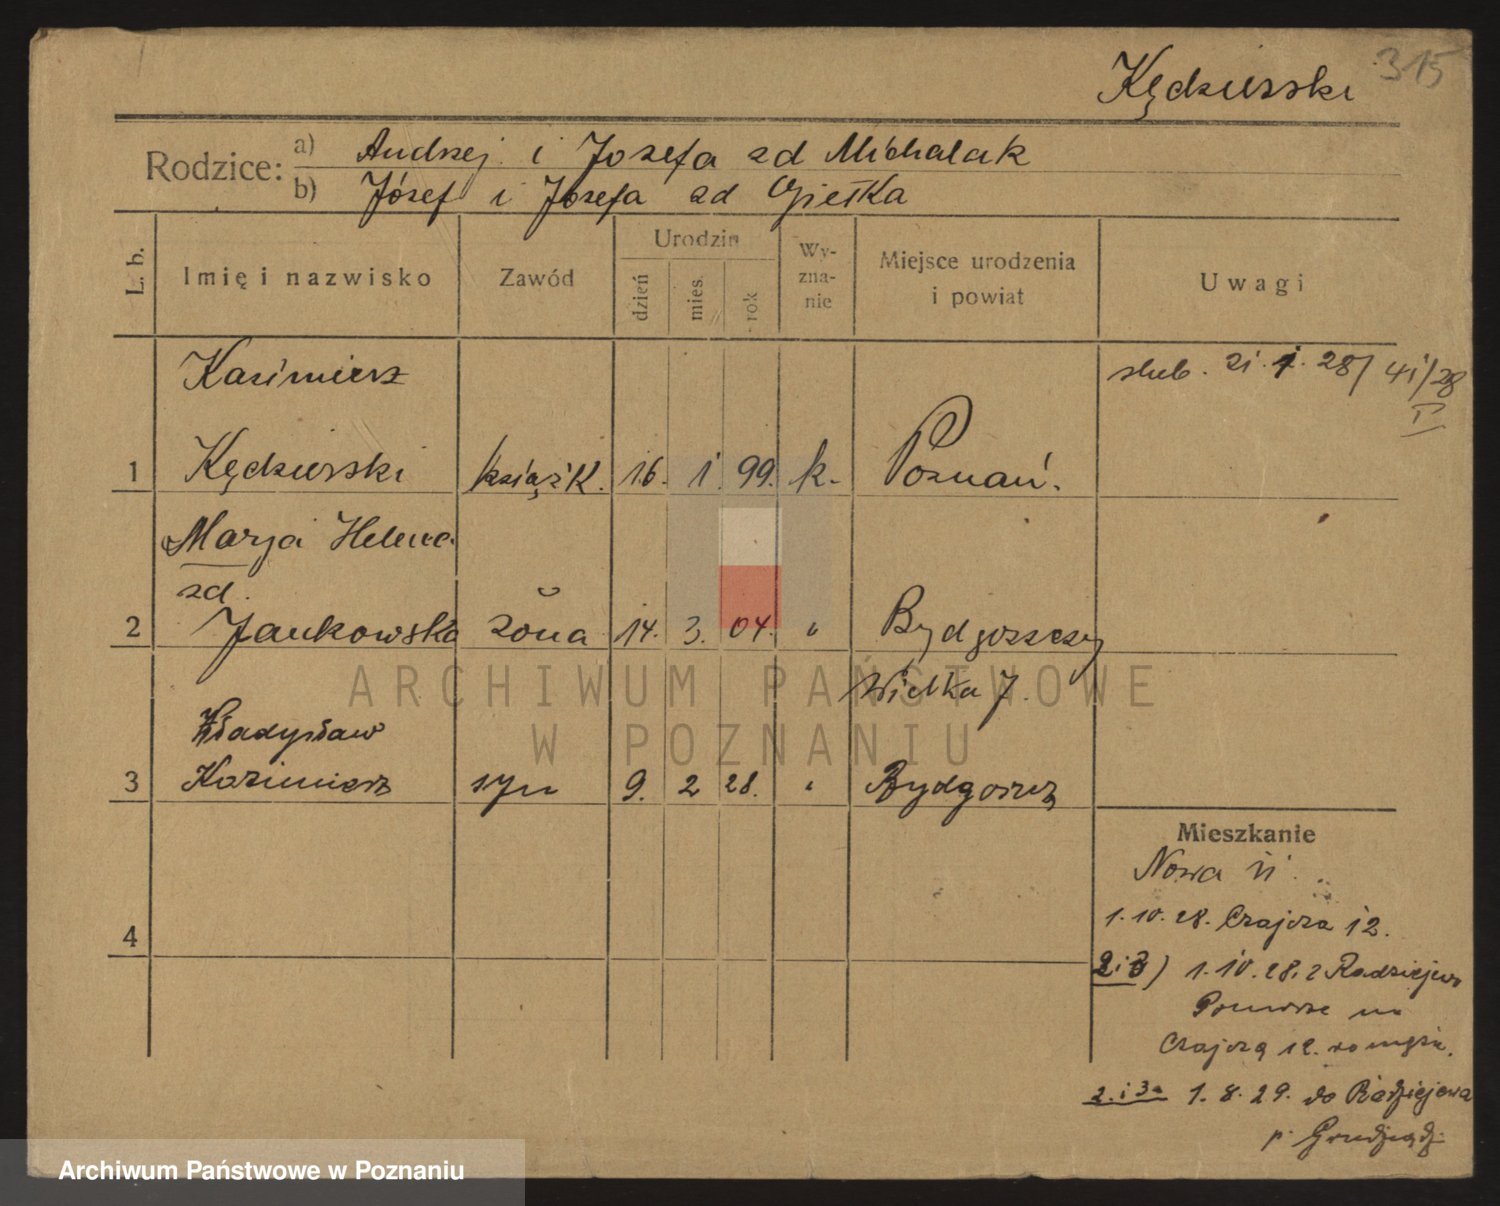 Kędzierski 315
Rodzice: a) Andrzej i Józefa zd Michalak
b) Józef i Józefa zd Giełka
L. b. Imię i nazwisko Zawód Urodzin dzień mies. rok Wy-zna-nie Miejsce urodzenia i powiat Uwagi
Kazimierz
ślub. 21. 1. 28/ 41/28
I
1 Kędzierski książk. 16. 1. 99. k. Poznań.
Marja Helena
zd.
2 Jankowska żona 14. 3. 04. " Bydgoszczy
Wielka
Władysław
3 Kazimierz syn 9. 2 28. " Bydgoszcz
Mieszkanie
Nowa 11.
4
1. 10. 28. Czajcza 12.
2 i 3) 1. 10. 28. z Radziejewo
Pomorze na
Czajczą 12. do męża.
2. i 3. 1. 8. 29. do Radziejewa
p. Grudządz.
ARCHIWUM PAŃSTWOWE
W POZNANIU
Archiwum Państwowe w Poznaniu